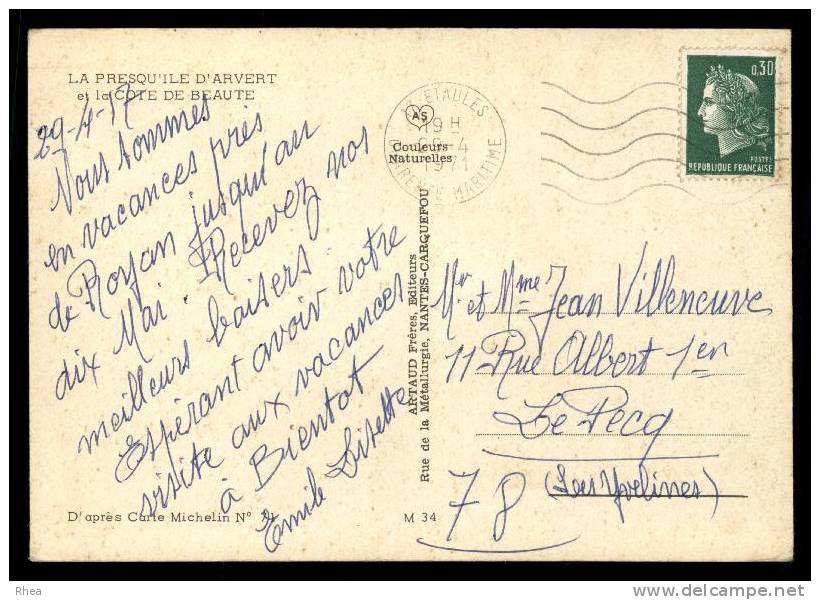 LA PRESQU'ILE D'ARVERT
et la COTE DE BEAUTE
29-4-17
Nous sommes
en vacances près
de Royan jusqu'au
dix Mai. Recevez nos
meilleurs baisers.
Espérant avoir votre
visite aux vacances
à Bientot
Emile Lisette
D'après Carte Michelin N°
M 34
ETAULES
19 H
-4
1971
MARITIME
AS
Couleurs
Naturelles
ARTAUD Frères, Editeurs
Rue de la Métallurgie, NANTES-CARQUEFOU
0,30
POSTES
REPUBLIQUE FRANÇAISE
Mr et Mme Jean Villeneuve
11 Rue Albert 1er
Le Pecq
78 (Les Yvelines)
Rhea
delcampe.net